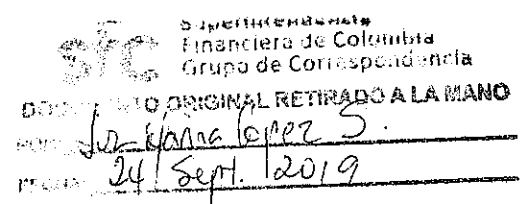 sfc Superintendencia
Financiera de Colombia
Grupo de Correspondencia
DOCUMENTO ORIGINAL RETIRADO A LA MANO
POR: Luz Lopez S.
FECHA: 24 Sept. 2019